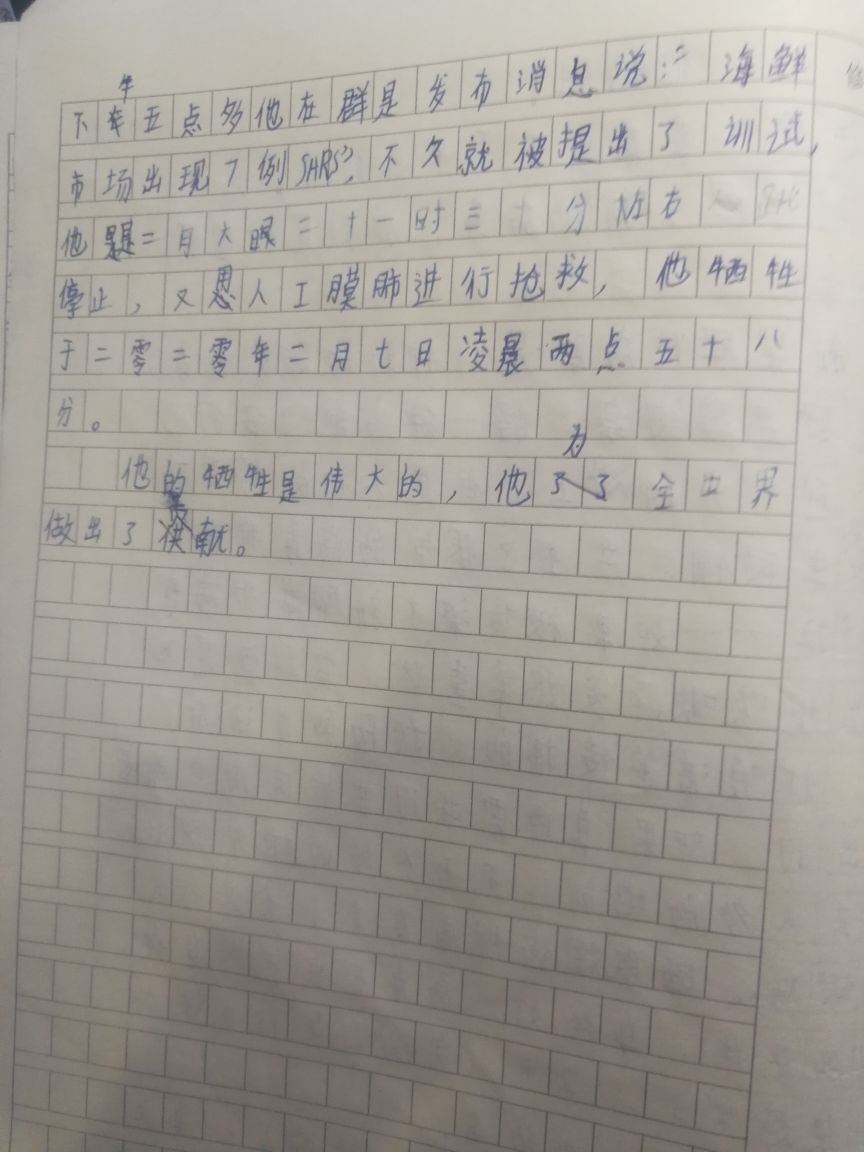 午
下年五点多他在群是发布消息说:“海鲜
市场出现7例SARS”,不久就被提出了训试,
他题二月大眼二十一时三十分
停止,又思人工膜肺进行抢救,他牺牲
于二零二零年二月七日凌晨两点五十八
分。
为
他的牺牲是伟大的,他了了全世界
做出了献。